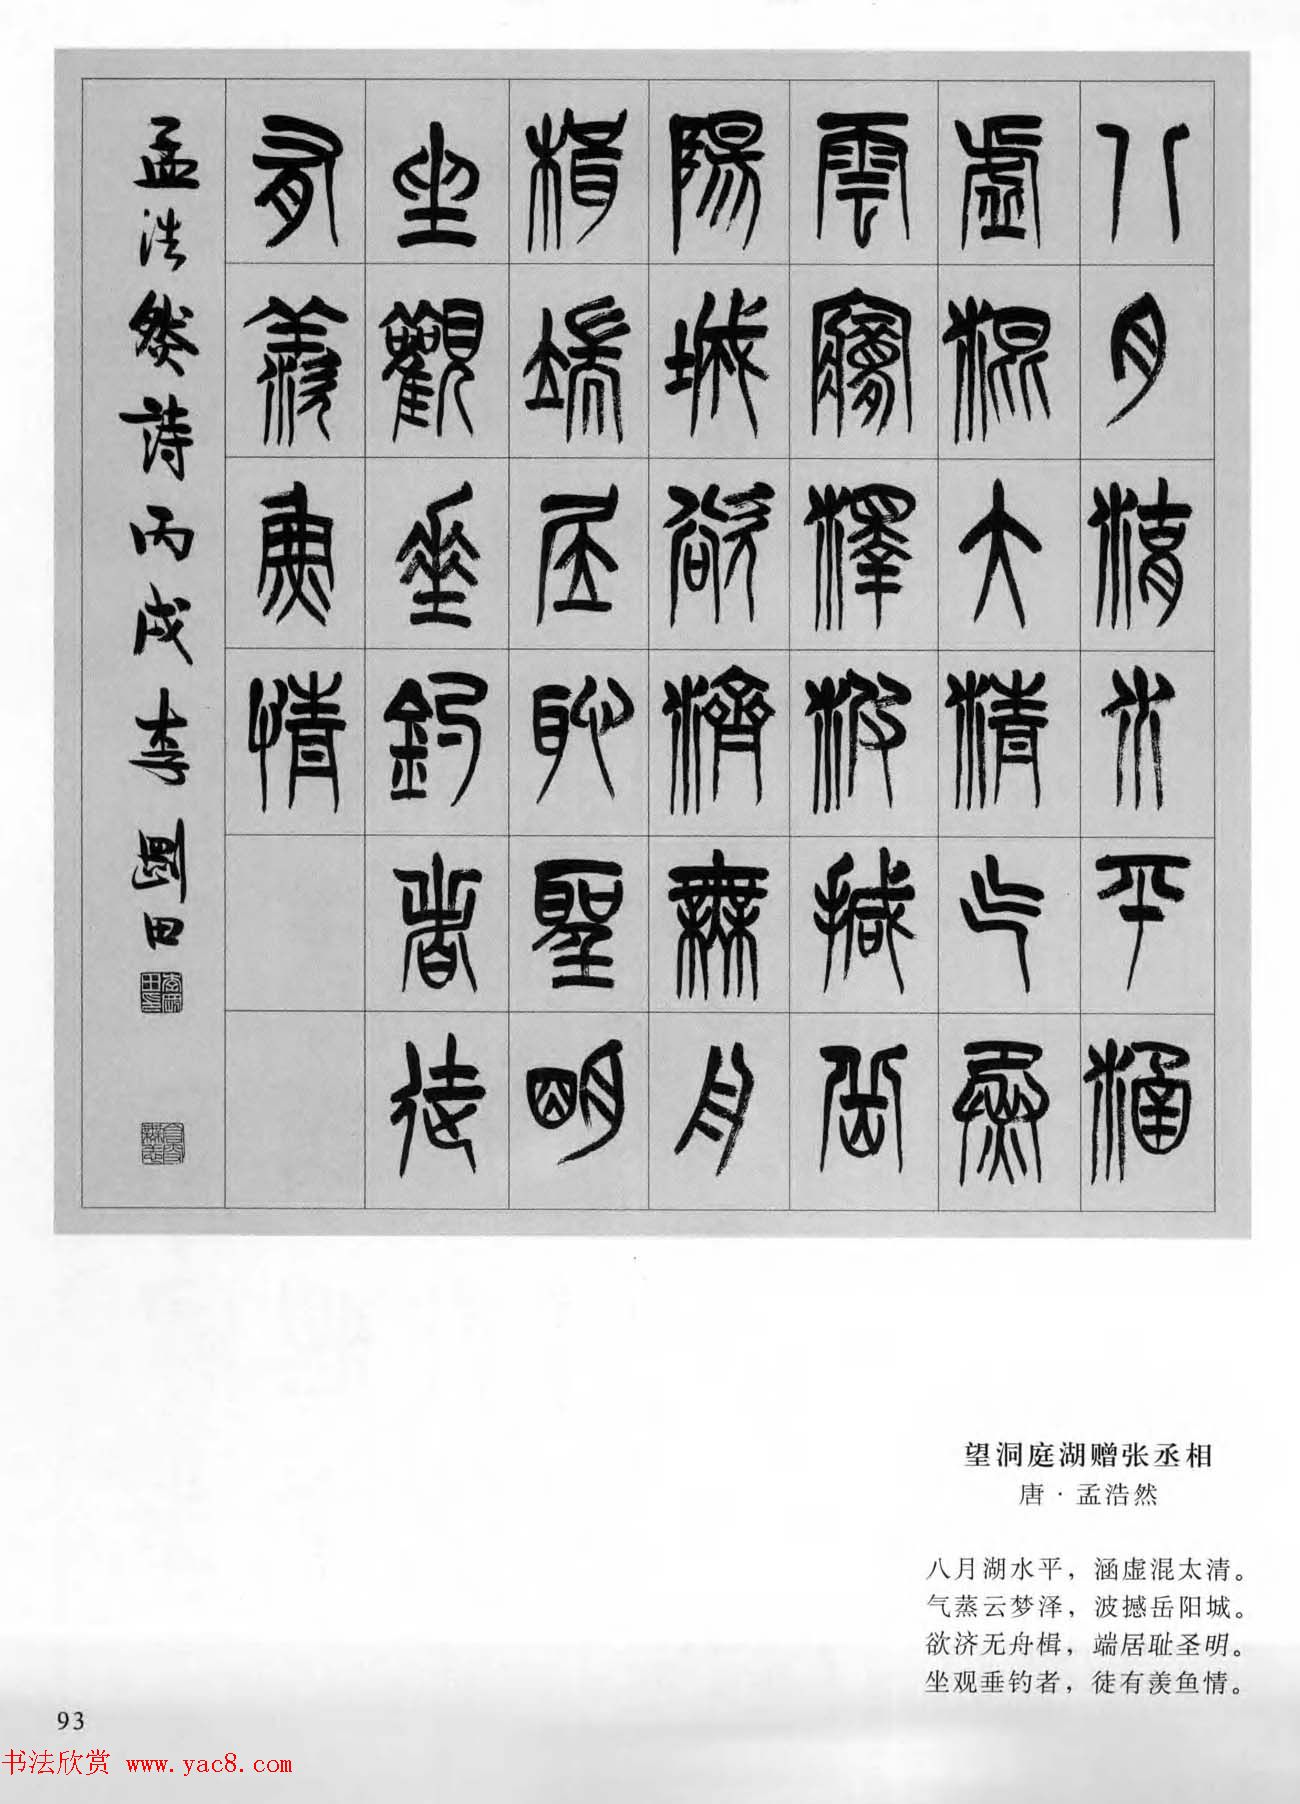 八月湖水平涵
虛混大清气蒸
雲夢澤波撼岳
陽城欲濟無舟
楫端居恥聖明
坐觀垂釣者徒
有羨魚情
孟浩然詩丙戌李剛田
望洞庭湖赠张丞相
唐·孟浩然
八月湖水平，涵虚混太清。
气蒸云梦泽，波撼岳阳城。
欲济无舟楫，端居耻圣明。
坐观垂钓者，徒有羡鱼情。
93
书法欣赏 www.yac8.com